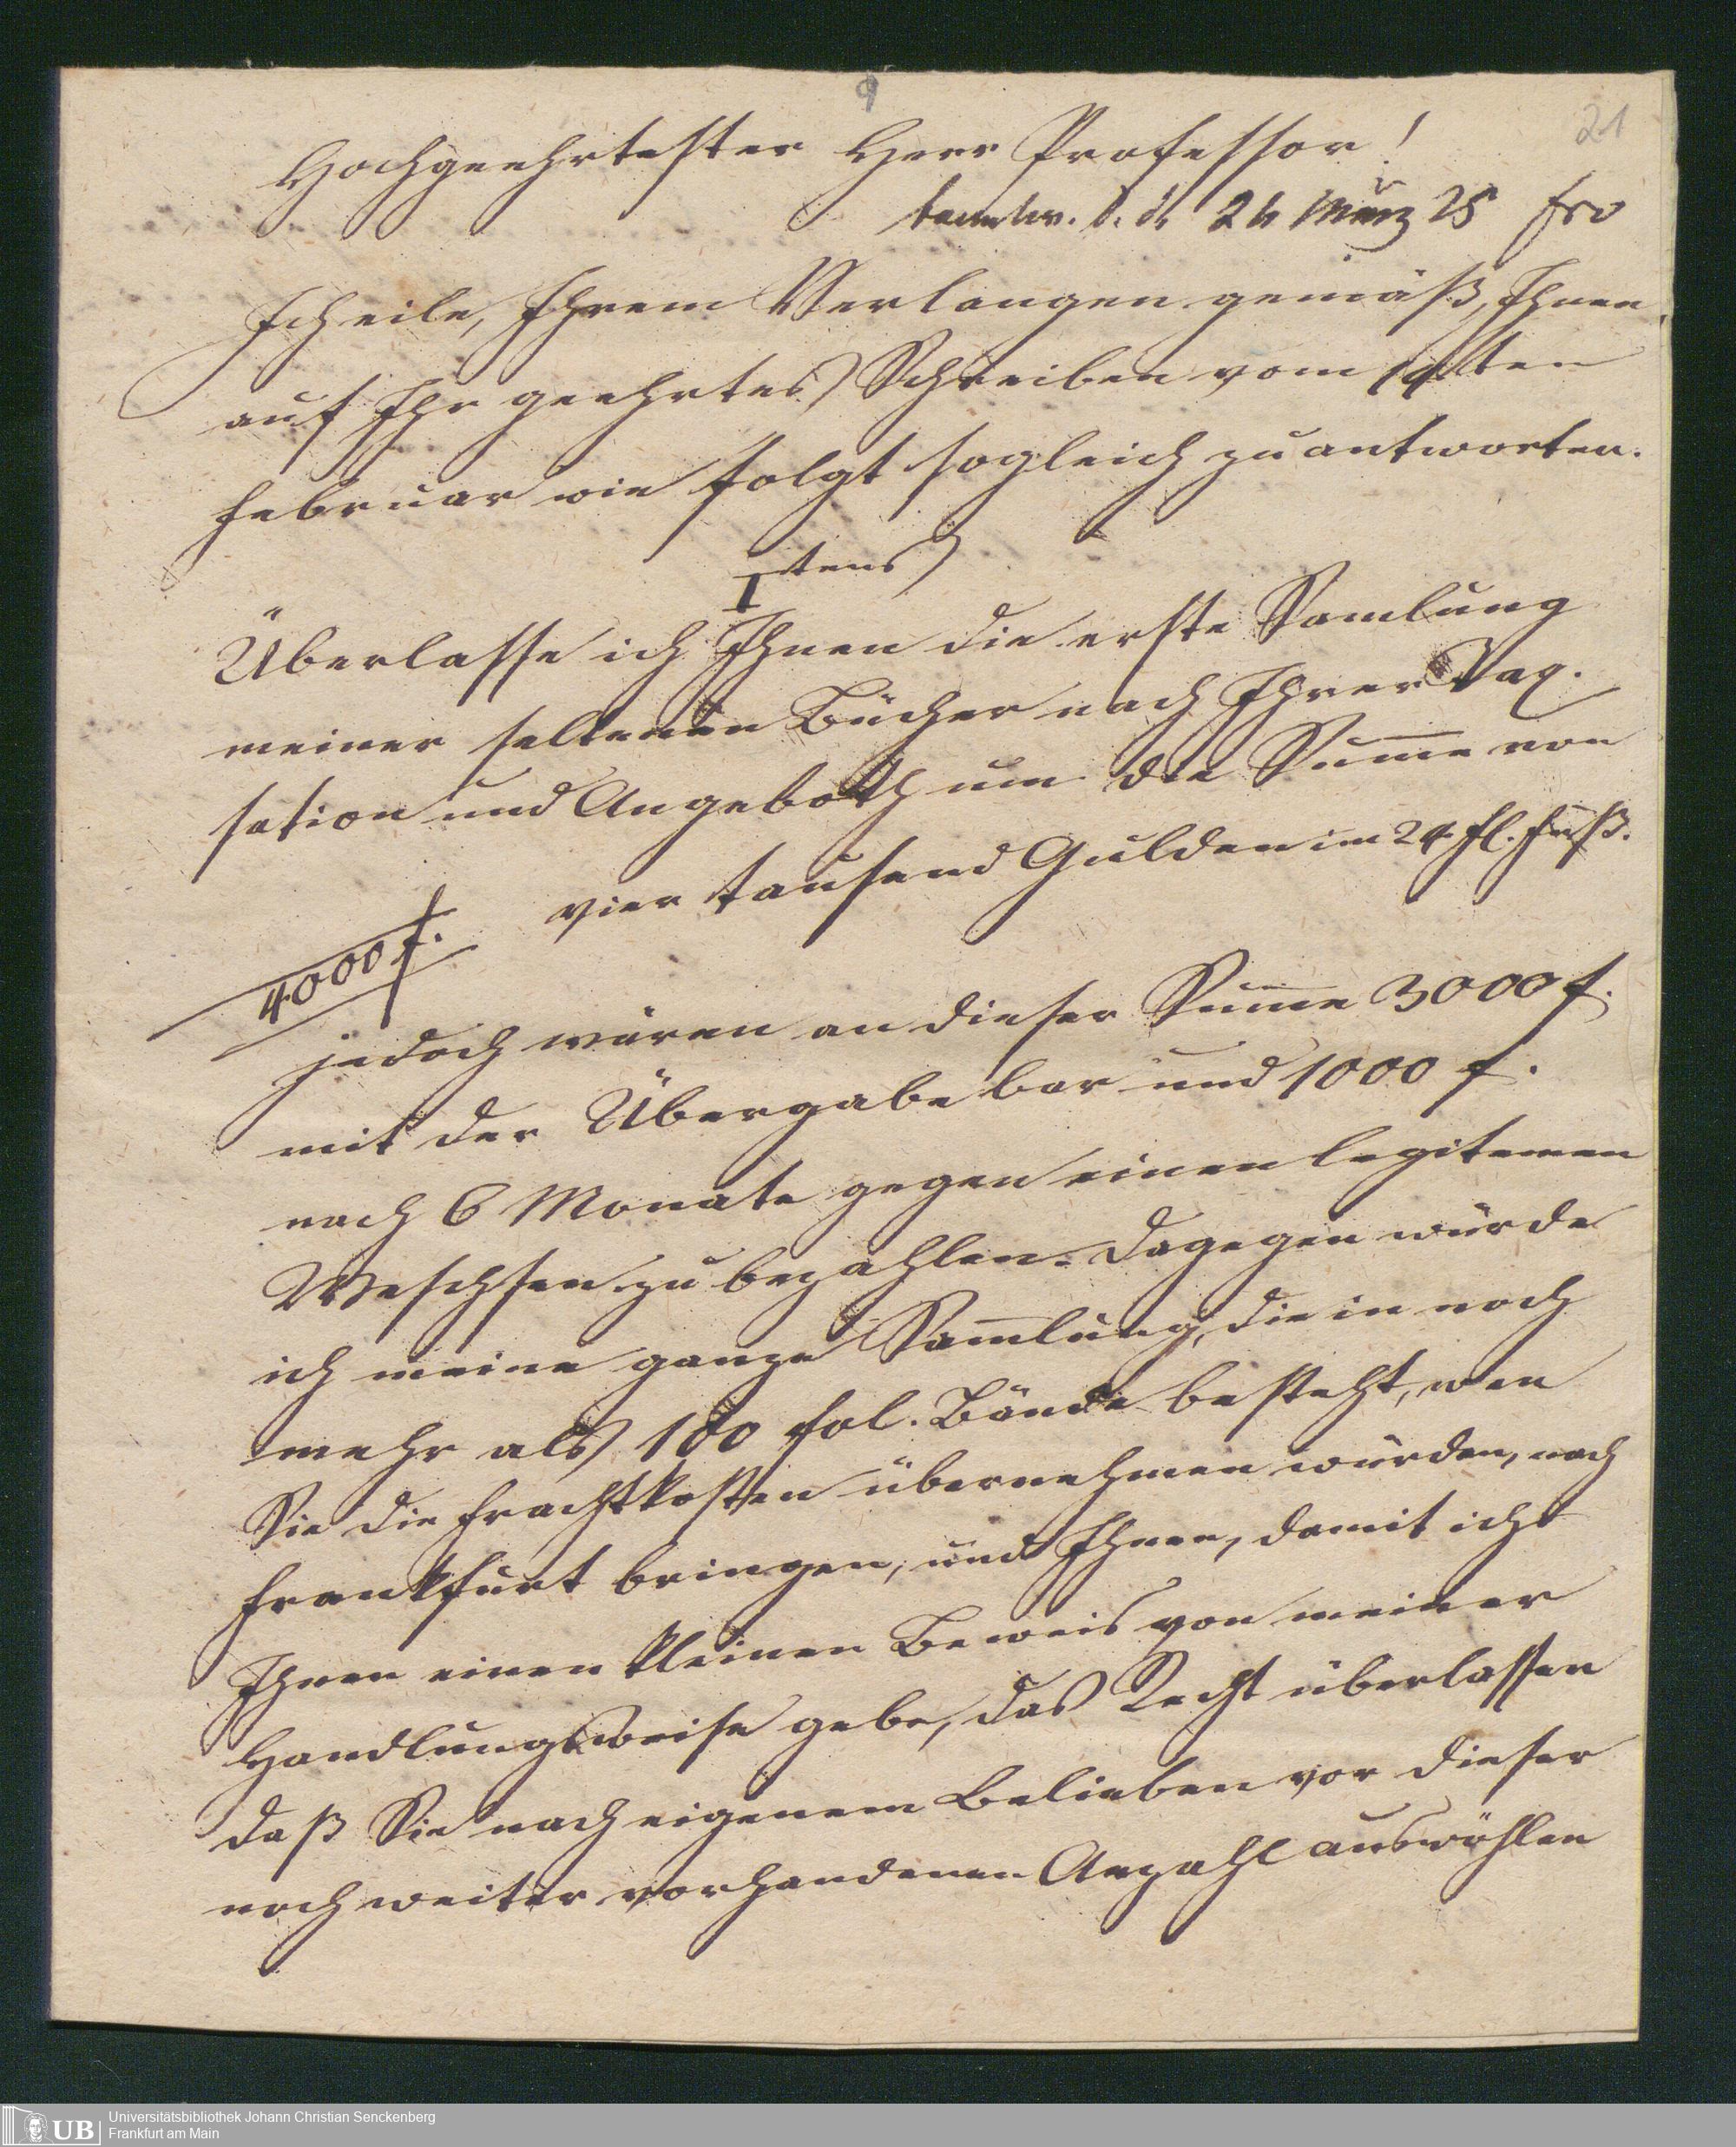 9
21
Hochgeehrtester Herr Professor!
beantw. d. d. 24 März 25 fro
Ich eile, Ihrem Verlangen gemäß, Ihnen
auf Ihr geehrtes Schreiben vom 19ten
Februar wie folgt sogleich zu antworten.
Itens
Überlasse ich Ihnen die erste Samlung
meiner seltenen Bücher nach Ihrer Tax.
sation und Angeboth um die Sum̅e von
vier tausend Gulden im 24 fl. Fuß.
4000 f.
jedoch wären an dieser Sum̅e 3000 f.
mit der Übergabe bar und 1000 f.
nach 6 Monate gegen einen legitemen
zu bezahlen. Dagegen würde
ich meine ganze Sam̅lung, die in noch
mehr als 100 fol. Bände besteht, wen
Sie die Frachtkosten übernehmen würden, nach
Frankfurt bringen, und Ihnen, damit ich
Ihnen einen kleinen Beweis von meiner
Handlungsweise gebe, das Recht überlassen
daß Sie nach eigenem Belieben vor dieser
noch weiter vorhandenen Anzahl auswählen
UB
Universitätsbibliothek Johann Christian Senckenberg
Frankfurt am Main